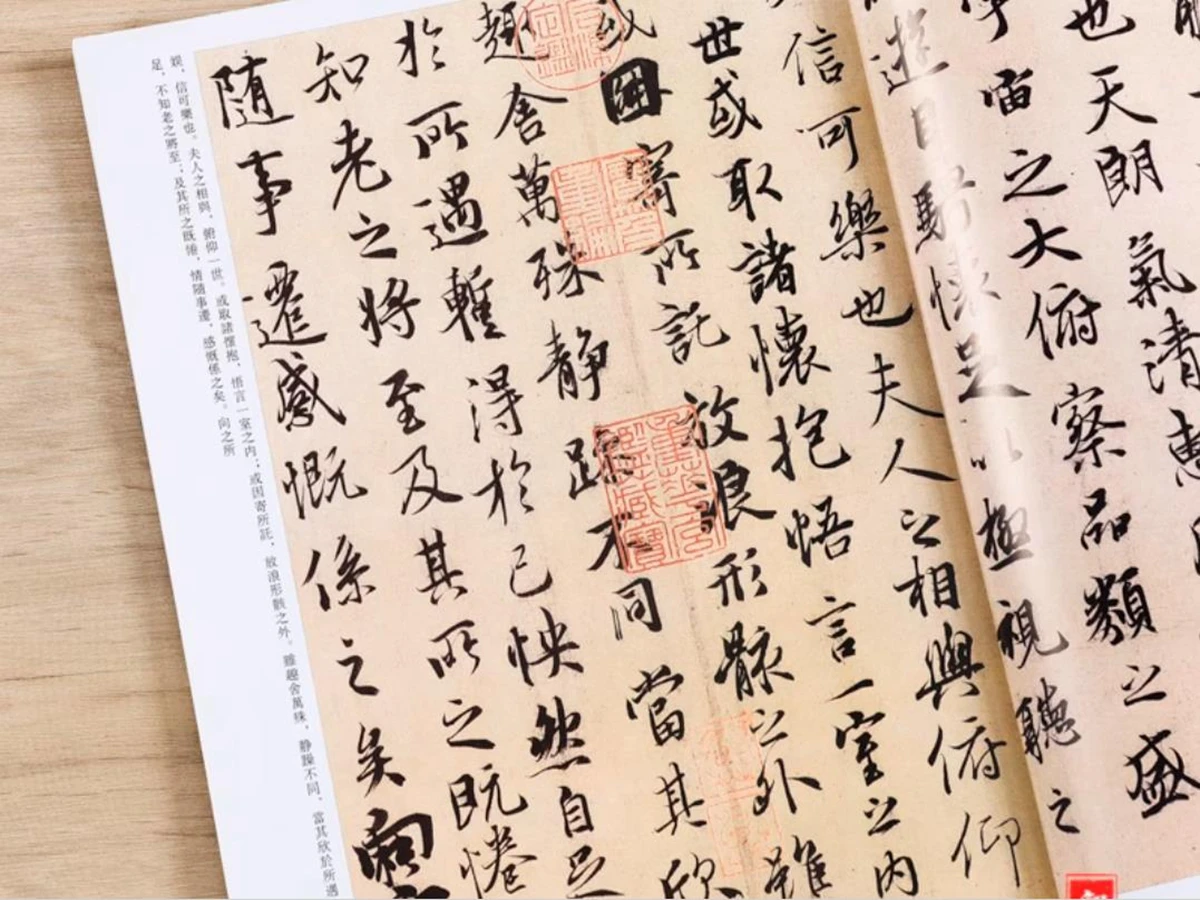 也天朗氣清惠
宇宙之大俯察品類之盛
遊目騁懷足以極視聽之
信可樂也夫人之相與俯仰
世或取諸懷抱悟言一室之内
或因寄所託放浪形骸之外雖
趣舍萬殊静躁不同當其欣
於所遇暫得於己怏然自足
知老之將至及其所之既惓
随事遷感慨係之矣向
娱，信可樂也。夫人之相與，俯仰一世。或取諸懷抱，悟言一室之内；或因寄所託，放浪形骸之外。雖趣舍萬殊，静躁不同，當其欣於所遇
足，不知老之將至；及其所之既惓，情隨事遷，感慨係之矣。向之所